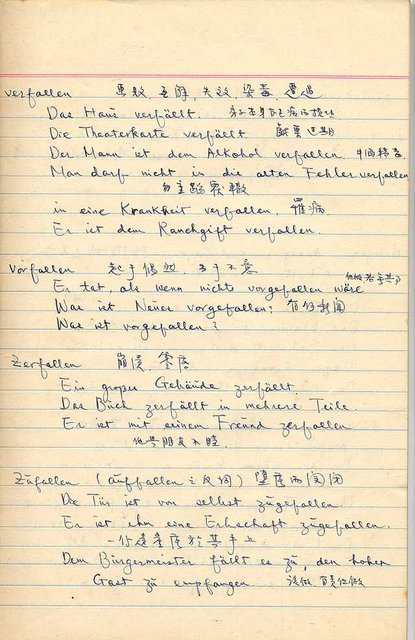 verfallen 失效, 染毒, 遭遇
Das Haus verfällt.
Die Theaterkarte verfällt 戲票过期
Der Mann ist dem Alkohol verfallen.
Man darf nicht in die alten Fehler verfallen
勿重蹈覆轍
in eine Krankheit verfallen, 罹病
Er ist dem Rauchgift verfallen.
Vorfallen 起于偶然, 出于不意
Er tat, als wenn nicht vorgefallen wäre
Was ist Neues vorgefallen? 有何新闻
Was ist vorgefallen?
Zerfallen 崩潰
Ein großes Gebäude zerfällt.
Das Buch zerfällt in mehrere Teile.
Er ist mit seinem Freund zerfallen
他与朋友不睦.
Zufallen (auffallen 之反词) 墜落而関闭
Die Tür ist von selbst zugefallen.
Er ist ihm eine Erbschaft zugefallen.
Dem Bürgermeister fällt es zu, den hohen
Gast zu empfangen.